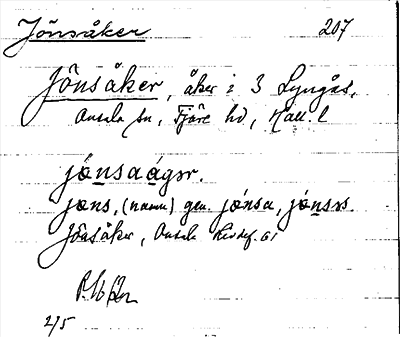 Jönsåker 207
Jönsåker, åker i 3 Lyngås,
Onsala sn, Fjäre hd, Hall. l
jónsaágər.
jøns, (namn) gen. jónsa, jónsəs.
Jönsåker, Onsala
2/5